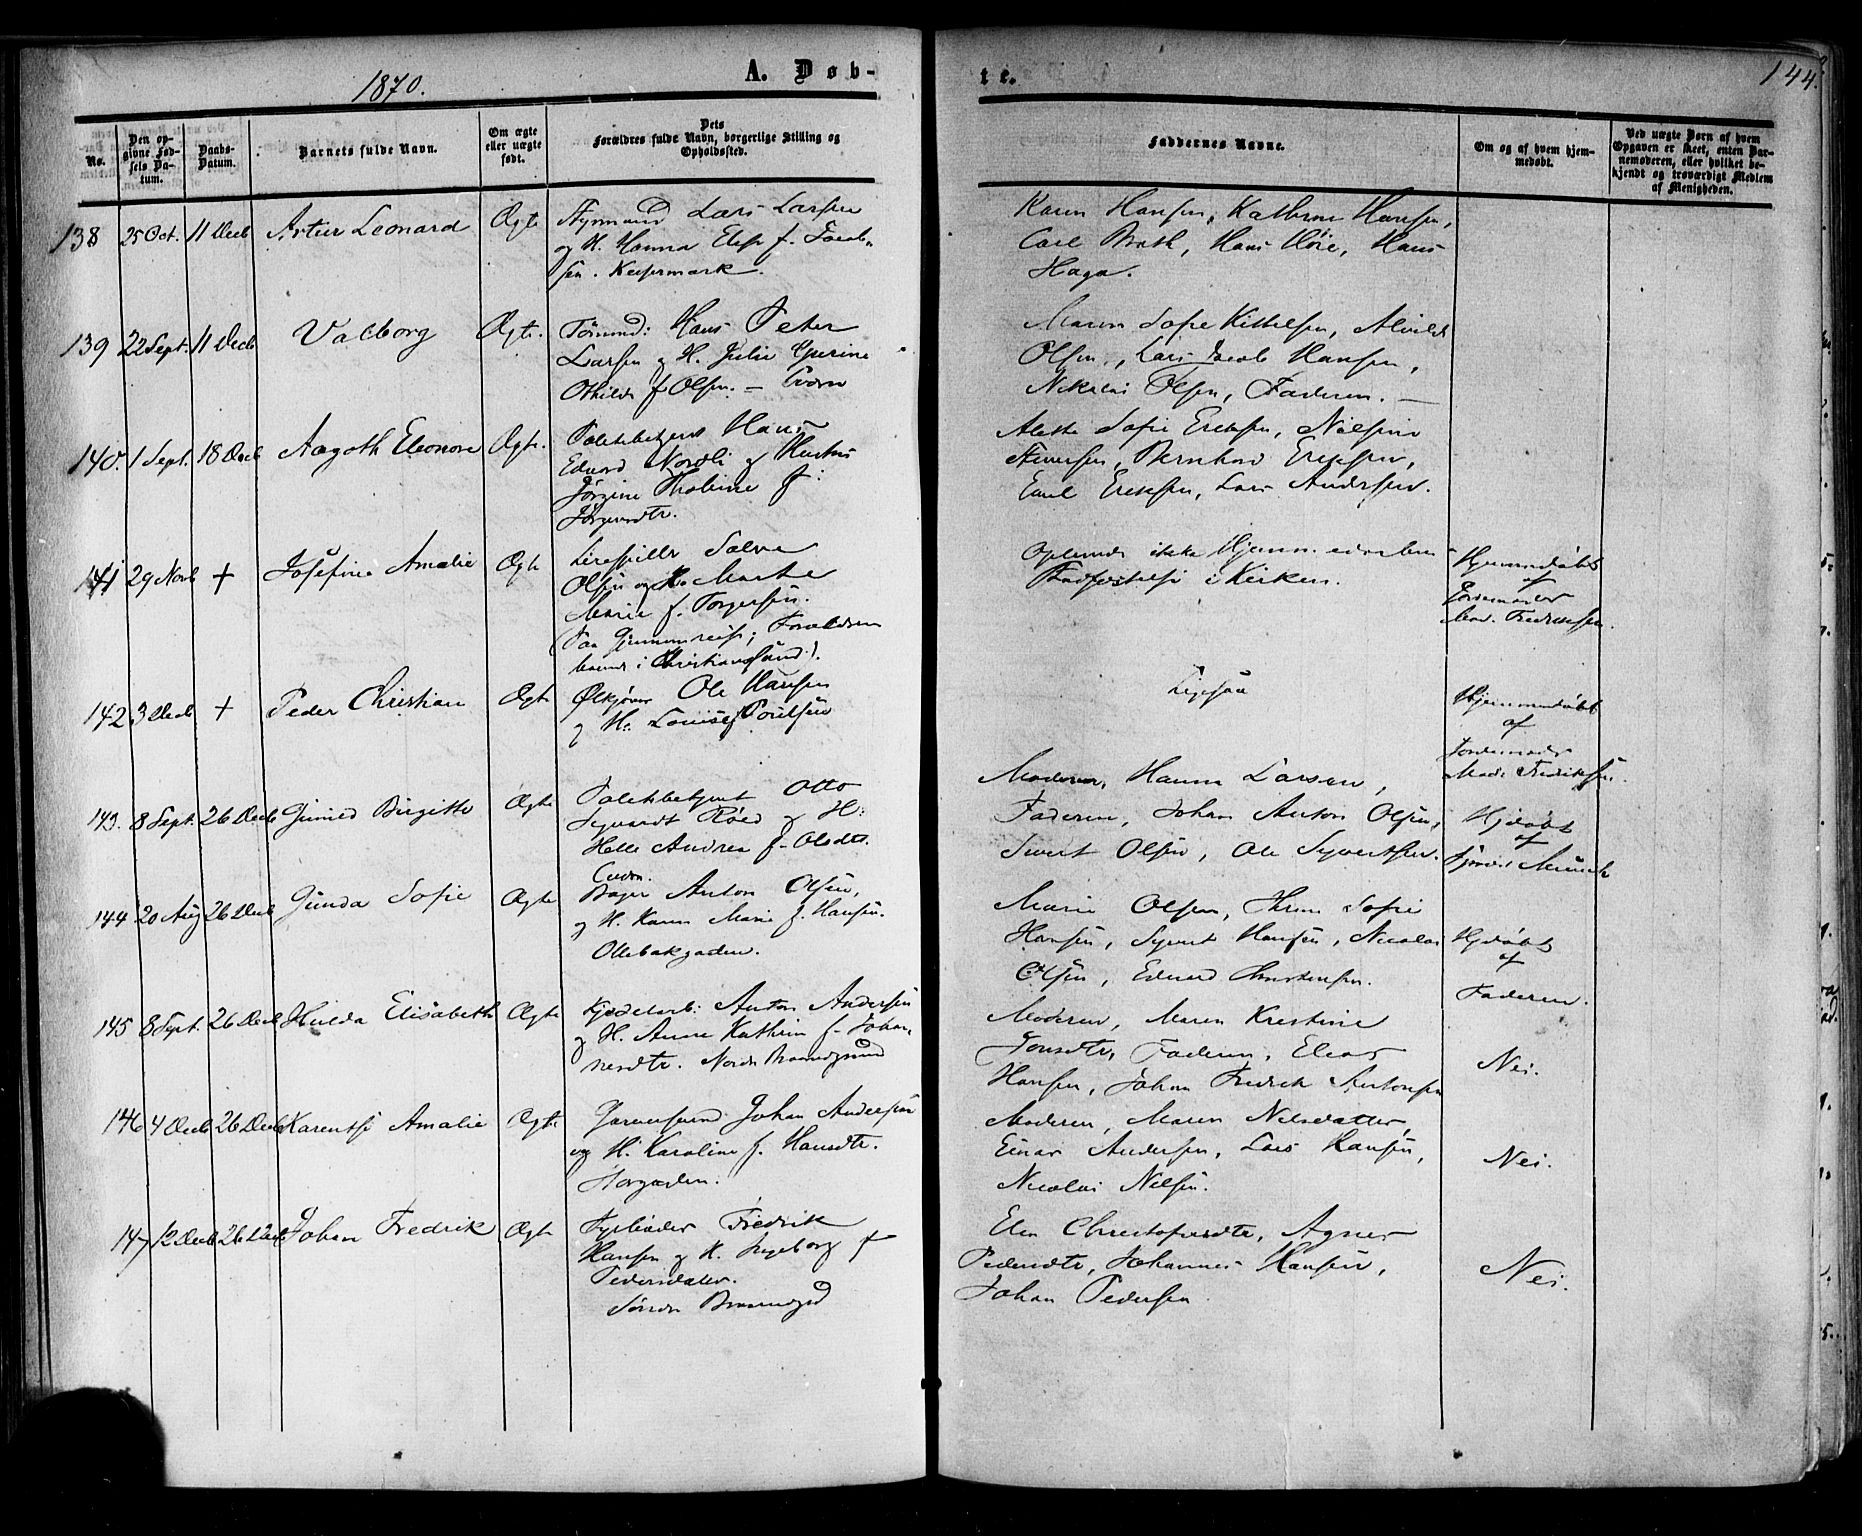 1870.
A. Døb-
te.
144.
No.
Den op-
givne Fød-
sels Da-
tum.
Daabs-
Datum.
Barnets fulde Navn.
Om ægte
eller uægte
født.
Dets
Forældres fulde Navn, borgerlige Stilling og
Opholdssted.
Faddernes Navne.
Om og af hvem hjem-
medøbt.
Ved uægte Børn af hvem
Opgaven er skeet, enten Bar-
nemoderen, eller hvilket be-
kjendt og troværdigt Medlem
af Menigheden.
138 25 Oct. 11 Decb Artur Leonard Ægte Styrmand Lars Larsen
og H. Hanna Elise f. Jacob-
sen.
Karen Hansen, Kathrine Hansen,
Carl Hans Hans
Haga.
139 22 Sept. 11 Decb Valborg Ægte. Hans Peter
Larsen og H. Julie
Othilde f Olsen. —
Maren Sofie Kittelsen, Alvilde
Olsen, Lars Jacob Hansen,
Nikolai Olsen, Faderen. —
140. 1 Sept. 18 Decb Aagoth Eleonore Ægte. Politibetjent Hans
Edvard Nordli og Hustru
Jørgine f:
Jørgensdtr.
Sofie Eriksen, Nilsine
Bernhard Eriksen,
Emil Eriksen, Lars Andersen.
141 29 Novb + Josefine Amalie Ægte Lirespiller
Olsen og H. Marthe
Marie f. Torgersen.
(Paa Gjennemreise; Forældrene
i Christianssund).
ikke Hjemm.
Stadfæstelse i Kirken.
Hjemmedøbt
af
Jordemoder
Mad. Fredriksen.
142 3 Decb + Peder Christian Ægte Ole Hansen
og H: Louise f Poulsen
Ligesaa
Hjemmedøbt
af
Jordemoder
Mad. Fredriksen.
143. 8 Sept. 26 Decb Birgitte Ægte Politibetjent Otto
Røed og H:
Helle Andrea f. Olsdtr.
Moderen, Hanna Larsen,
Faderen, Johan Anton Olsen,
Sivert Olsen, Ole Syvertsen.
Hjdøbt
af
Munch
144 20 Aug 26 Decb Gunda Sofie Ægte Bager Anton Olsen,
og H. Karen Marie f. Hansen.
Ollebakgaden.
Marie Olsen, Sofie
Hansen, Syvert Hansen, Nicolai
Olsen, Edvard Christensen.
Hjdøbt
af
Faderen.
145 8 Sept. 26 Decb Hulda Elisabeth Ægte Anton Andersen
og H. Anne Kathrine f. Johan-
nesdtr. Nordre Brandgrund
Moderen, Maren Kristine
Faderen, Elias
Hansen, Johan Fredrik Antonsen
Nei.
146 4 Decb 26 Decb Amalie Ægte Johan Andersen
og H. Karoline f. Hansdtr.
Moderen, Maren Nilsdatter,
Einar Andersen, Lars Hansen,
Nicolai Nilsen.
Nei.
147 12 Decb 26 Decb Johan Fredrik Ægte Fyrbøder Fredrik
Hansen og H. Ingeborg f
Pedersdatter.
Søndre
Elen Christofersdtr, Agnes
Pedersdtr, Johannes Hansen,
Johan Pedersen
Nei.